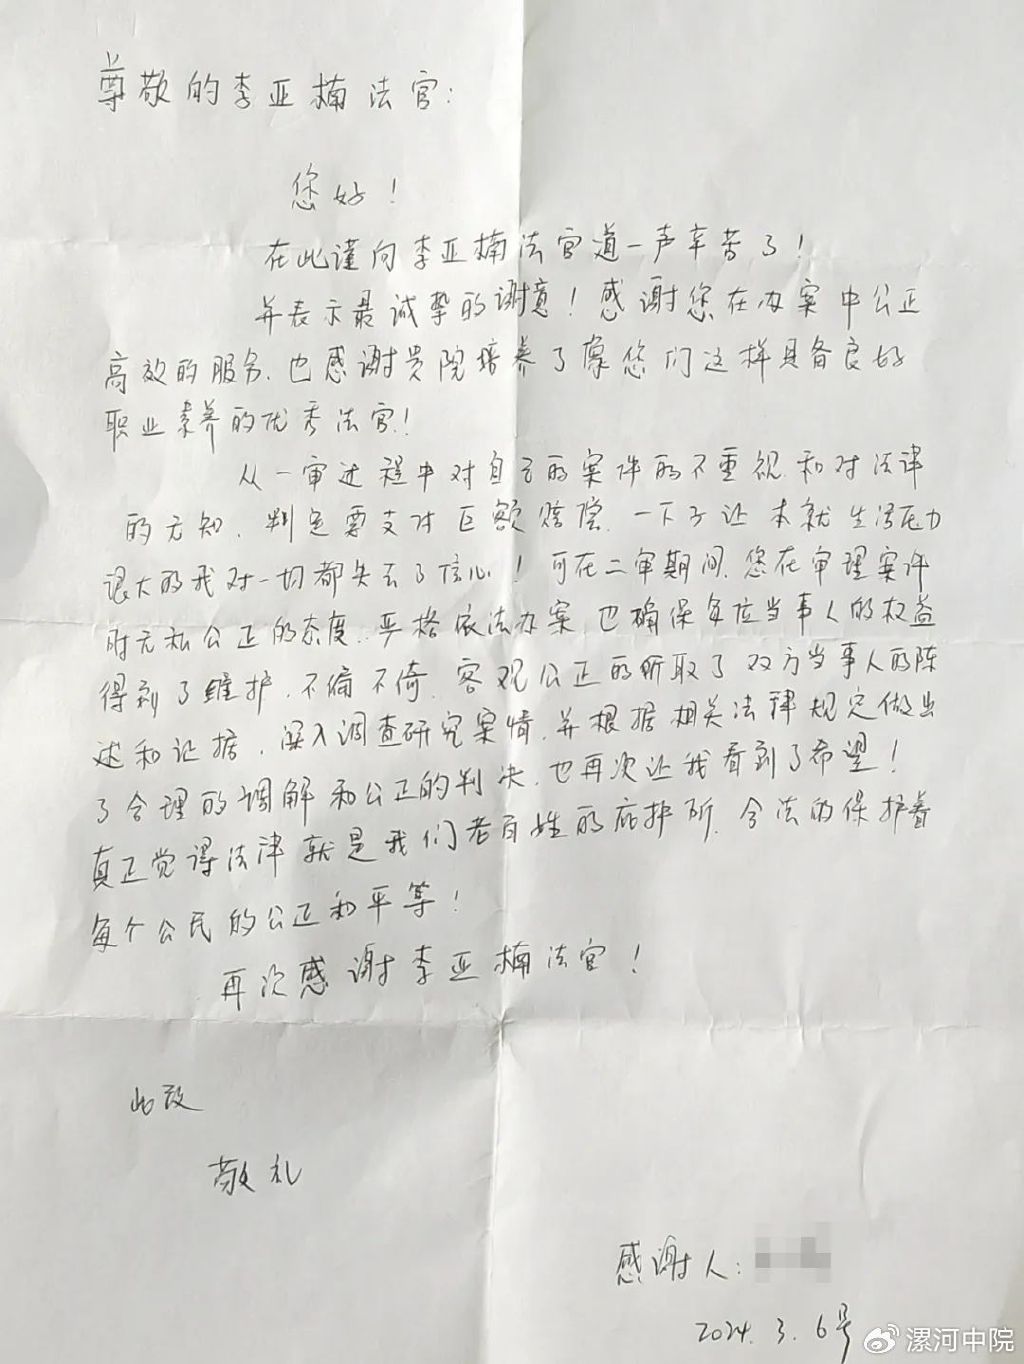 尊敬的李亚楠法官：
您好！
在此谨向李亚楠法官道一声辛苦了！
并表示最诚挚的谢意！感谢您在办案中公正
高效的服务、也感谢贵院培养了像您们这样具备良好
职业素养的优秀法官！
从一审过程中对自己的案件的不重视和对法律
的无知、判定要支付巨额赔偿、一下子让本就生活压力
很大的我对一切都失去了信心！可在二审期间、您在审理案件
时无私公正的态度、严格依法办案、也确保每位当事人的权益
得到了维护、不偏不倚、客观公正的听取了双方当事人的陈
述和证据、深入调查研究案情、并根据相关法律规定做出
了合理的调解和公正的判决、也再次让我看到了希望！
真正觉得法津就是我们老百姓的庇护所、令法的保护着
每个公民的公正和平等！
再次感谢李亚楠法官！
此致
敬礼
感谢人：
2024.3.6号
漯河中院